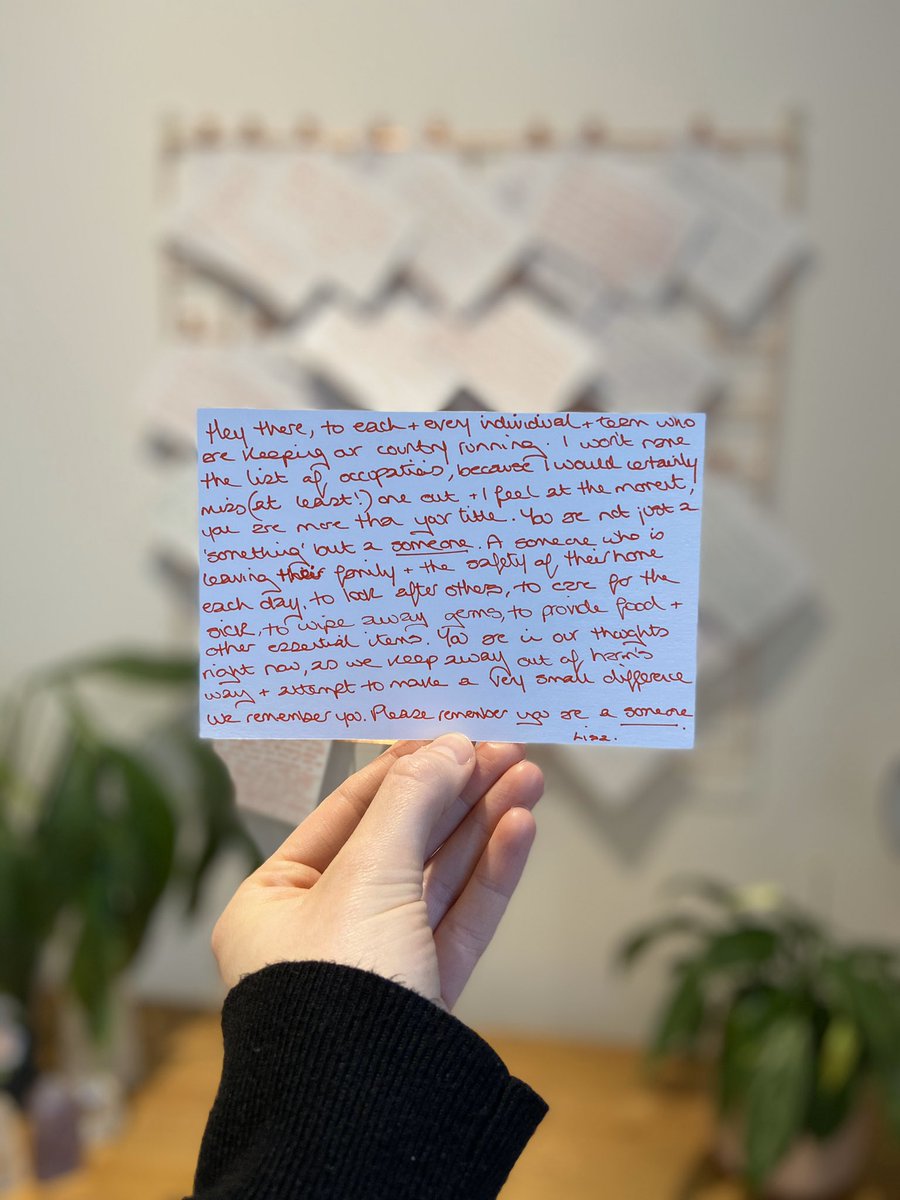 Hey there, to each + every individual + team who
are keeping our country running. I won't name
the list of occupations, because I would certainly
miss (at least!) one out + I feel at the moment,
you are more than your title. You are not just a
'something' but a someone. A someone who is
leaving their family + the safety of their home
each day, to look after others, to care for the
sick, to wipe away germs, to provide food +
other essential items. You are in our thoughts
right now, as we keep away out of harm's
way + attempt to make a very small difference
we remember you. Please remember you are a someone.
Lizz.